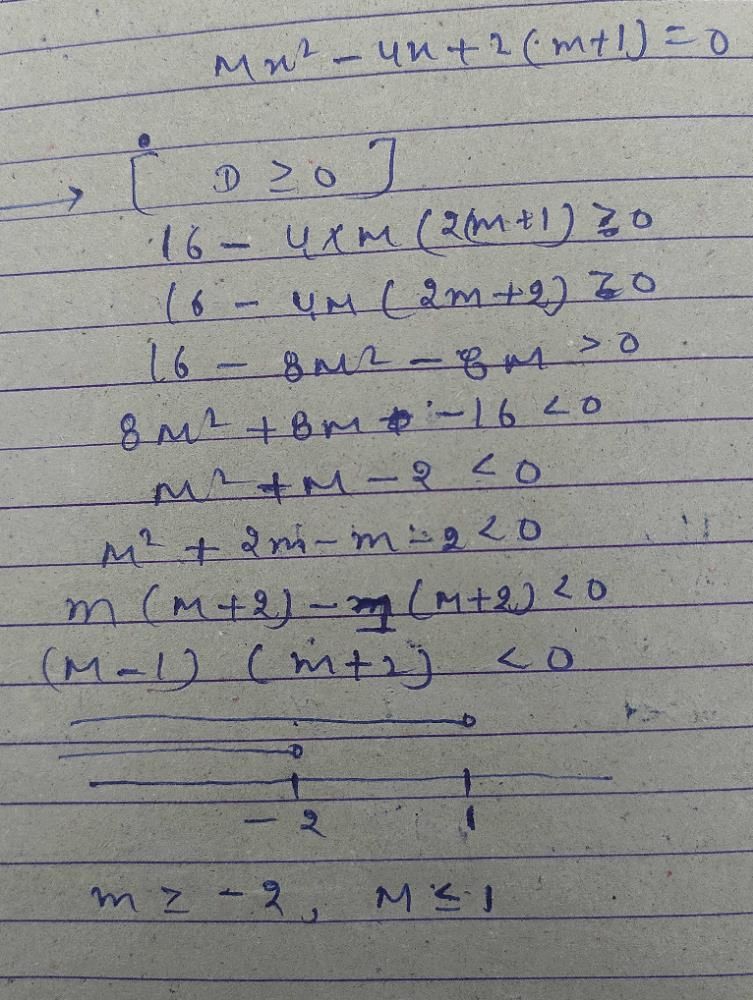 mx² - 4x + 2(m+1) = 0
→ [ D ≥ 0 ]
16 - 4×m (2(m+1) ≥ 0
16 - 4m (2m+2) ≥ 0
16 - 8m² - 8m > 0
8m² + 8m - 16 < 0
m² + m - 2 < 0
m² + 2m - m - 2 < 0
m (m+2) - 1 (m+2) < 0
(m-1) (m+2) < 0
-2 1
m ≥ -2, m ≤ 1